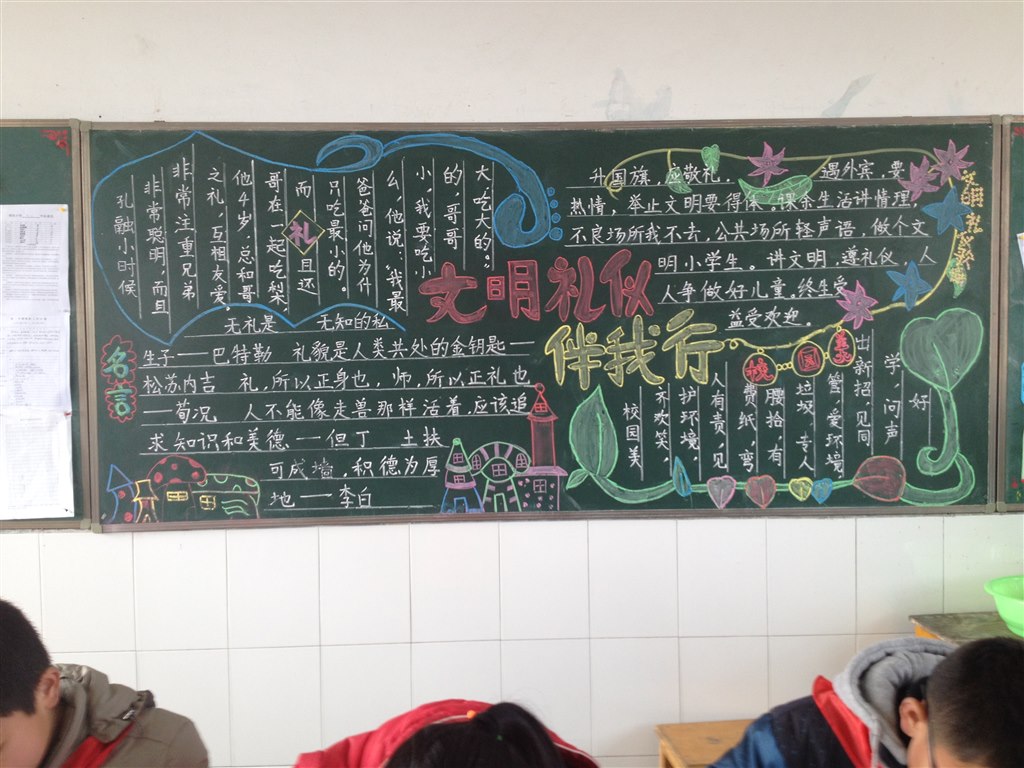 孔融小时候
非常聪明，而且
非常注重兄弟
之礼，互相友爱。
他4岁，总和哥
哥在一起吃梨，
而且还
礼
只吃最小的。
爸爸问他为什
么，他说：“我最
小，我要吃小
的，哥哥
大吃大的。”
文明礼仪
伴我行
名言
无礼是 无知的私
生子——巴特勒 礼貌是人类共处的金钥匙—
—松苏内吉 礼，所以正身也，师，所以正礼也
——荀况 人不能像走兽那样活着，应该追
求知识和美德——但丁 土扶
可成墙，积德为厚
地——李白
文明礼
升国旗，应敬礼。 遇外宾，要
热情，举止文明要得体。课余生活讲情理，
不良场所我不去，公共场所轻声语，做个文
明小学生。讲文明，遵礼仪，人
人争做好儿童。终生受
益受欢迎。
校园
校园美
不欢笑，
护环境，
人有责，见
费纸，弯
腰拾，有
垃圾，专人
管，爱环境
出新招，见同
学，问声
好